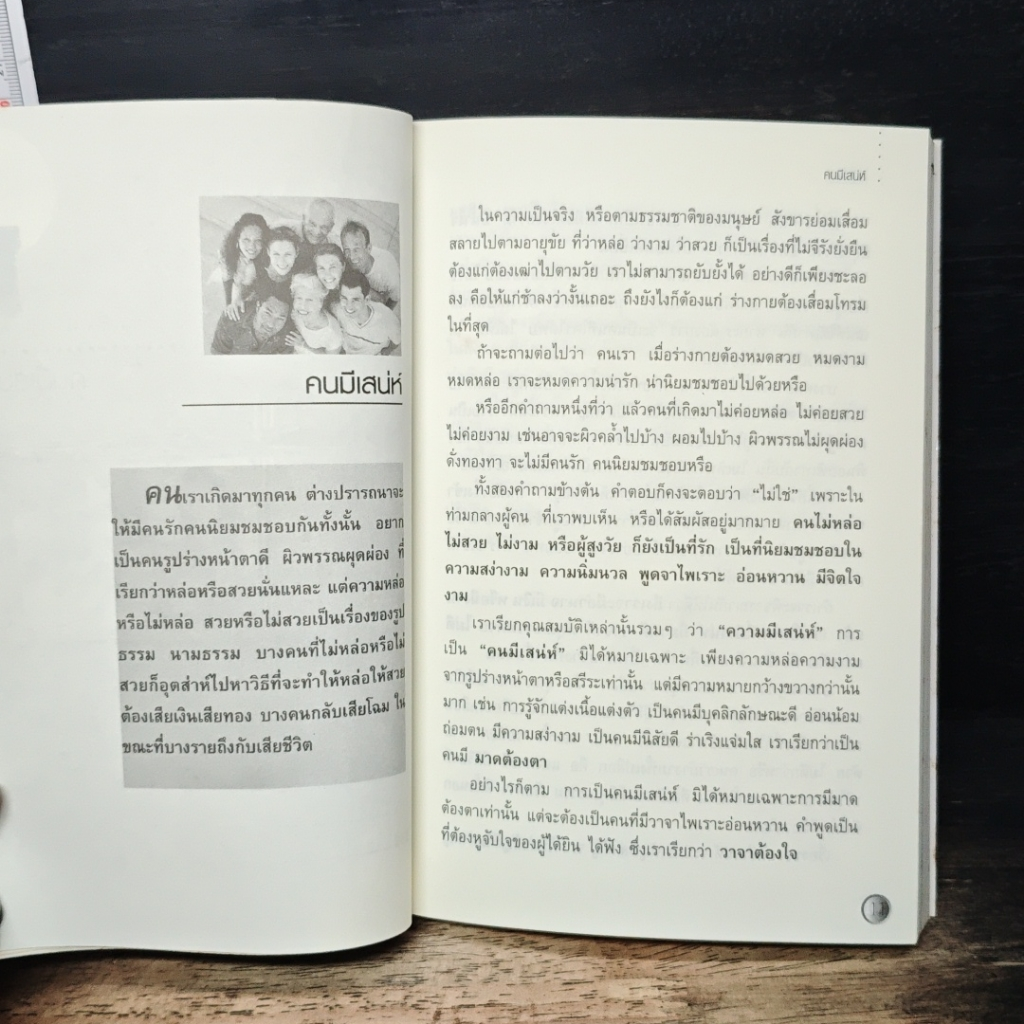 คนมีเสน่ห์
คนเราเกิดมาทุกคน ต่างปรารถนาจะ
ให้มีคนรักคนนิยมชมชอบกันทั้งนั้น อยาก
เป็นคนรูปร่างหน้าตาดี ผิวพรรณผุดผ่อง ที่
เรียกว่าหล่อหรือสวยนั่นแหละ แต่ความหล่อ
หรือไม่หล่อ สวยหรือไม่สวยเป็นเรื่องของรูป
ธรรม นามธรรม บางคนที่ไม่หล่อหรือไม่
สวยก็อุตส่าห์ไปหาวิธีที่จะทำให้หล่อให้สวย
ต้องเสียเงินเสียทอง บางคนกลับเสียโฉม ใน
ขณะที่บางรายถึงกับเสียชีวิต
คนมีเสน่ห์
ในความเป็นจริง หรือตามธรรมชาติของมนุษย์ สังขารย่อมเสื่อม
สลายไปตามอายุขัย ที่ว่าหล่อ ว่างาม ว่าสวย ก็เป็นเรื่องที่ไม่จีรังยั่งยืน
ต้องแก่ต้องเฒ่าไปตามวัย เราไม่สามารถยับยั้งได้ อย่างดีก็เพียงชะลอ
ลง คือให้แก่ช้าลงว่างั้นเถอะ ถึงยังไงก็ต้องแก่ ร่างกายต้องเสื่อมโทรม
ในที่สุด
ถ้าจะถามต่อไปว่า คนเรา เมื่อร่างกายต้องหมดสวย หมดงาม
หมดหล่อ เราจะหมดความน่ารัก น่านิยมชมชอบไปด้วยหรือ
หรืออีกคำถามหนึ่งที่ว่า แล้วคนที่เกิดมาไม่ค่อยหล่อ ไม่ค่อยสวย
ไม่ค่อยงาม เช่นอาจจะผิวคล้ำไปบ้าง ผอมไปบ้าง ผิวพรรณไม่ผุดผ่อง
ดั่งทองทา จะไม่มีคนรัก คนนิยมชมชอบหรือ
ทั้งสองคำถามข้างต้น คำตอบก็คงจะตอบว่า “ไม่ใช่” เพราะใน
ท่ามกลางผู้คน ที่เราพบเห็น หรือได้สัมผัสอยู่มากมาย คนไม่หล่อ
ไม่สวย ไม่งาม หรือผู้สูงวัย ก็ยังเป็นที่รัก เป็นที่นิยมชมชอบใน
ความสง่างาม ความนิ่มนวล พูดจาไพเราะ อ่อนหวาน มีจิตใจ
งาม
เราเรียกคุณสมบัติเหล่านั้นรวมๆ ว่า “ความมีเสน่ห์” การ
เป็น “คนมีเสน่ห์” มิได้หมายเฉพาะ เพียงความหล่อความงาม
จากรูปร่างหน้าตาหรือสรีระเท่านั้น แต่มีความหมายกว้างขวางกว่านั้น
มาก เช่น การรู้จักแต่งเนื้อแต่งตัว เป็นคนมีบุคลิกลักษณะดี อ่อนน้อม
ถ่อมตน มีความสง่างาม เป็นคนมีนิสัยดี ร่าเริงแจ่มใส เราเรียกว่าเป็น
คนมี มาดต้องตา
อย่างไรก็ตาม การเป็นคนมีเสน่ห์ มิได้หมายเฉพาะการมีมาด
ต้องตาเท่านั้น แต่จะต้องเป็นคนที่มีวาจาไพเราะอ่อนหวาน คำพูดเป็น
ที่ต้องหูจับใจของผู้ได้ยิน ได้ฟัง ซึ่งเราเรียกว่า วาจาต้องใจ